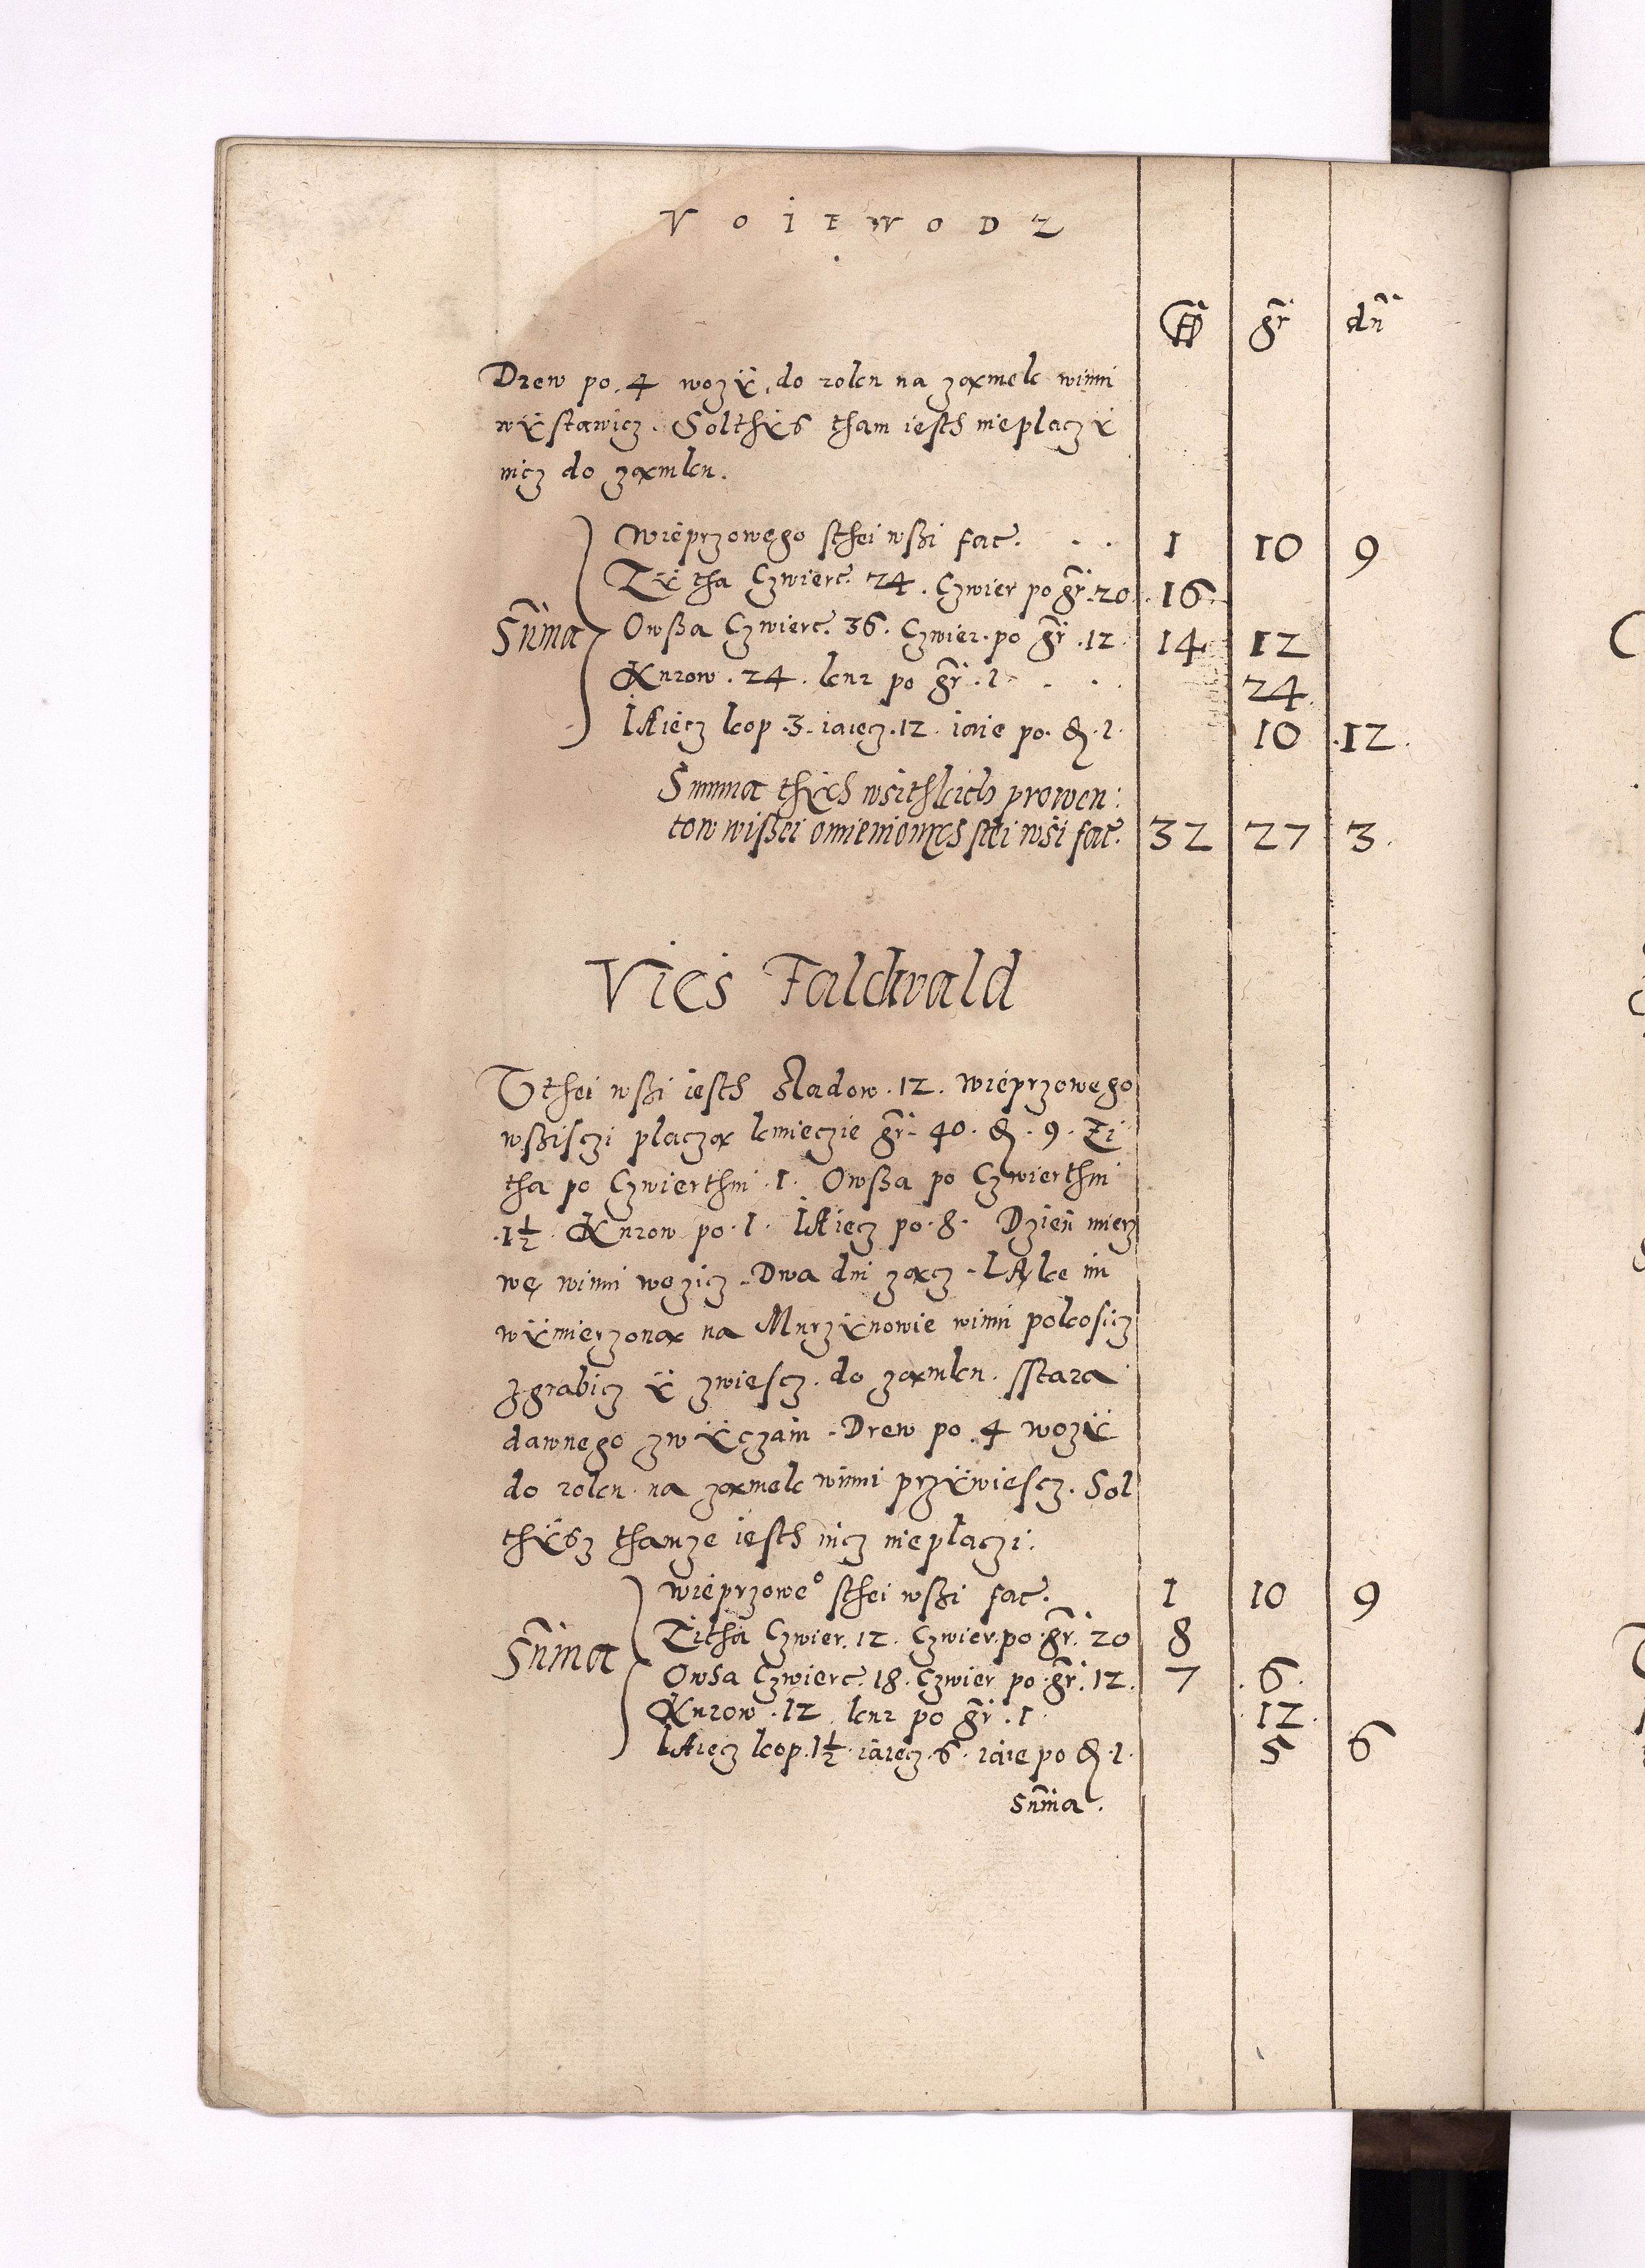 VOIEWODZ
fl gr dn
Drew po. 4 wozÿ do roku na zamek winni
wÿstawicz. Solthÿs tham iesth nieplaczÿ
nicz do zamku.
Wieprzowego sthei wßi fac. . . 1 10 9
Zÿtha Czwierc. 24. Czwier po gr. 20 16
Sum̃a Owßa Czwierc. 36. Czwier. po gr. 12 14 12
Kurow. 24. kur po gr. 1 . . 24
IAiecz kop. 3. iaiecz. 12. iaie po. d. 1. 10 12
Summa thÿch wsithkich prowen:
tow wißei omienionÿch stei wsi fac. 32 27 3
Vies Falckvald
Vthei wßi iesth Sladow. 12. Wieprzowego
wßisczi placza kmieczie gr. 40. d. 9. Zi
tha po Czwierthni. 1. Owßa po Czwierthni
1½. Kurow po. 1. IAiecz po. 8. Dzien mierz
wę winni wozicz. Dwa dni zacz. LAke im
wÿmierzona na Murzÿnowie winni pokosicz
zgrabicz ÿ zwiescz. do zamku. sstara
dawnego zwÿczaiu. Drew po. 4 wozÿ
do roku na zamek winni przÿwiescz. Sol
thÿsz thamze iesth nicz nieplaczi.
Wieprzoweº sthei wßi fac. 1 10 9
Zitha Czwier. 12. Czwier. po gr. 20 8
Sum̃a Owsa Czwierc. 18. Czwier po gr. 12. 7 6
Kurow. 12. kur po gr. 1 12
IAiecz kop. 1½. iaiecz. 6. iaie po d. 1. 5 6
Sum̃a.